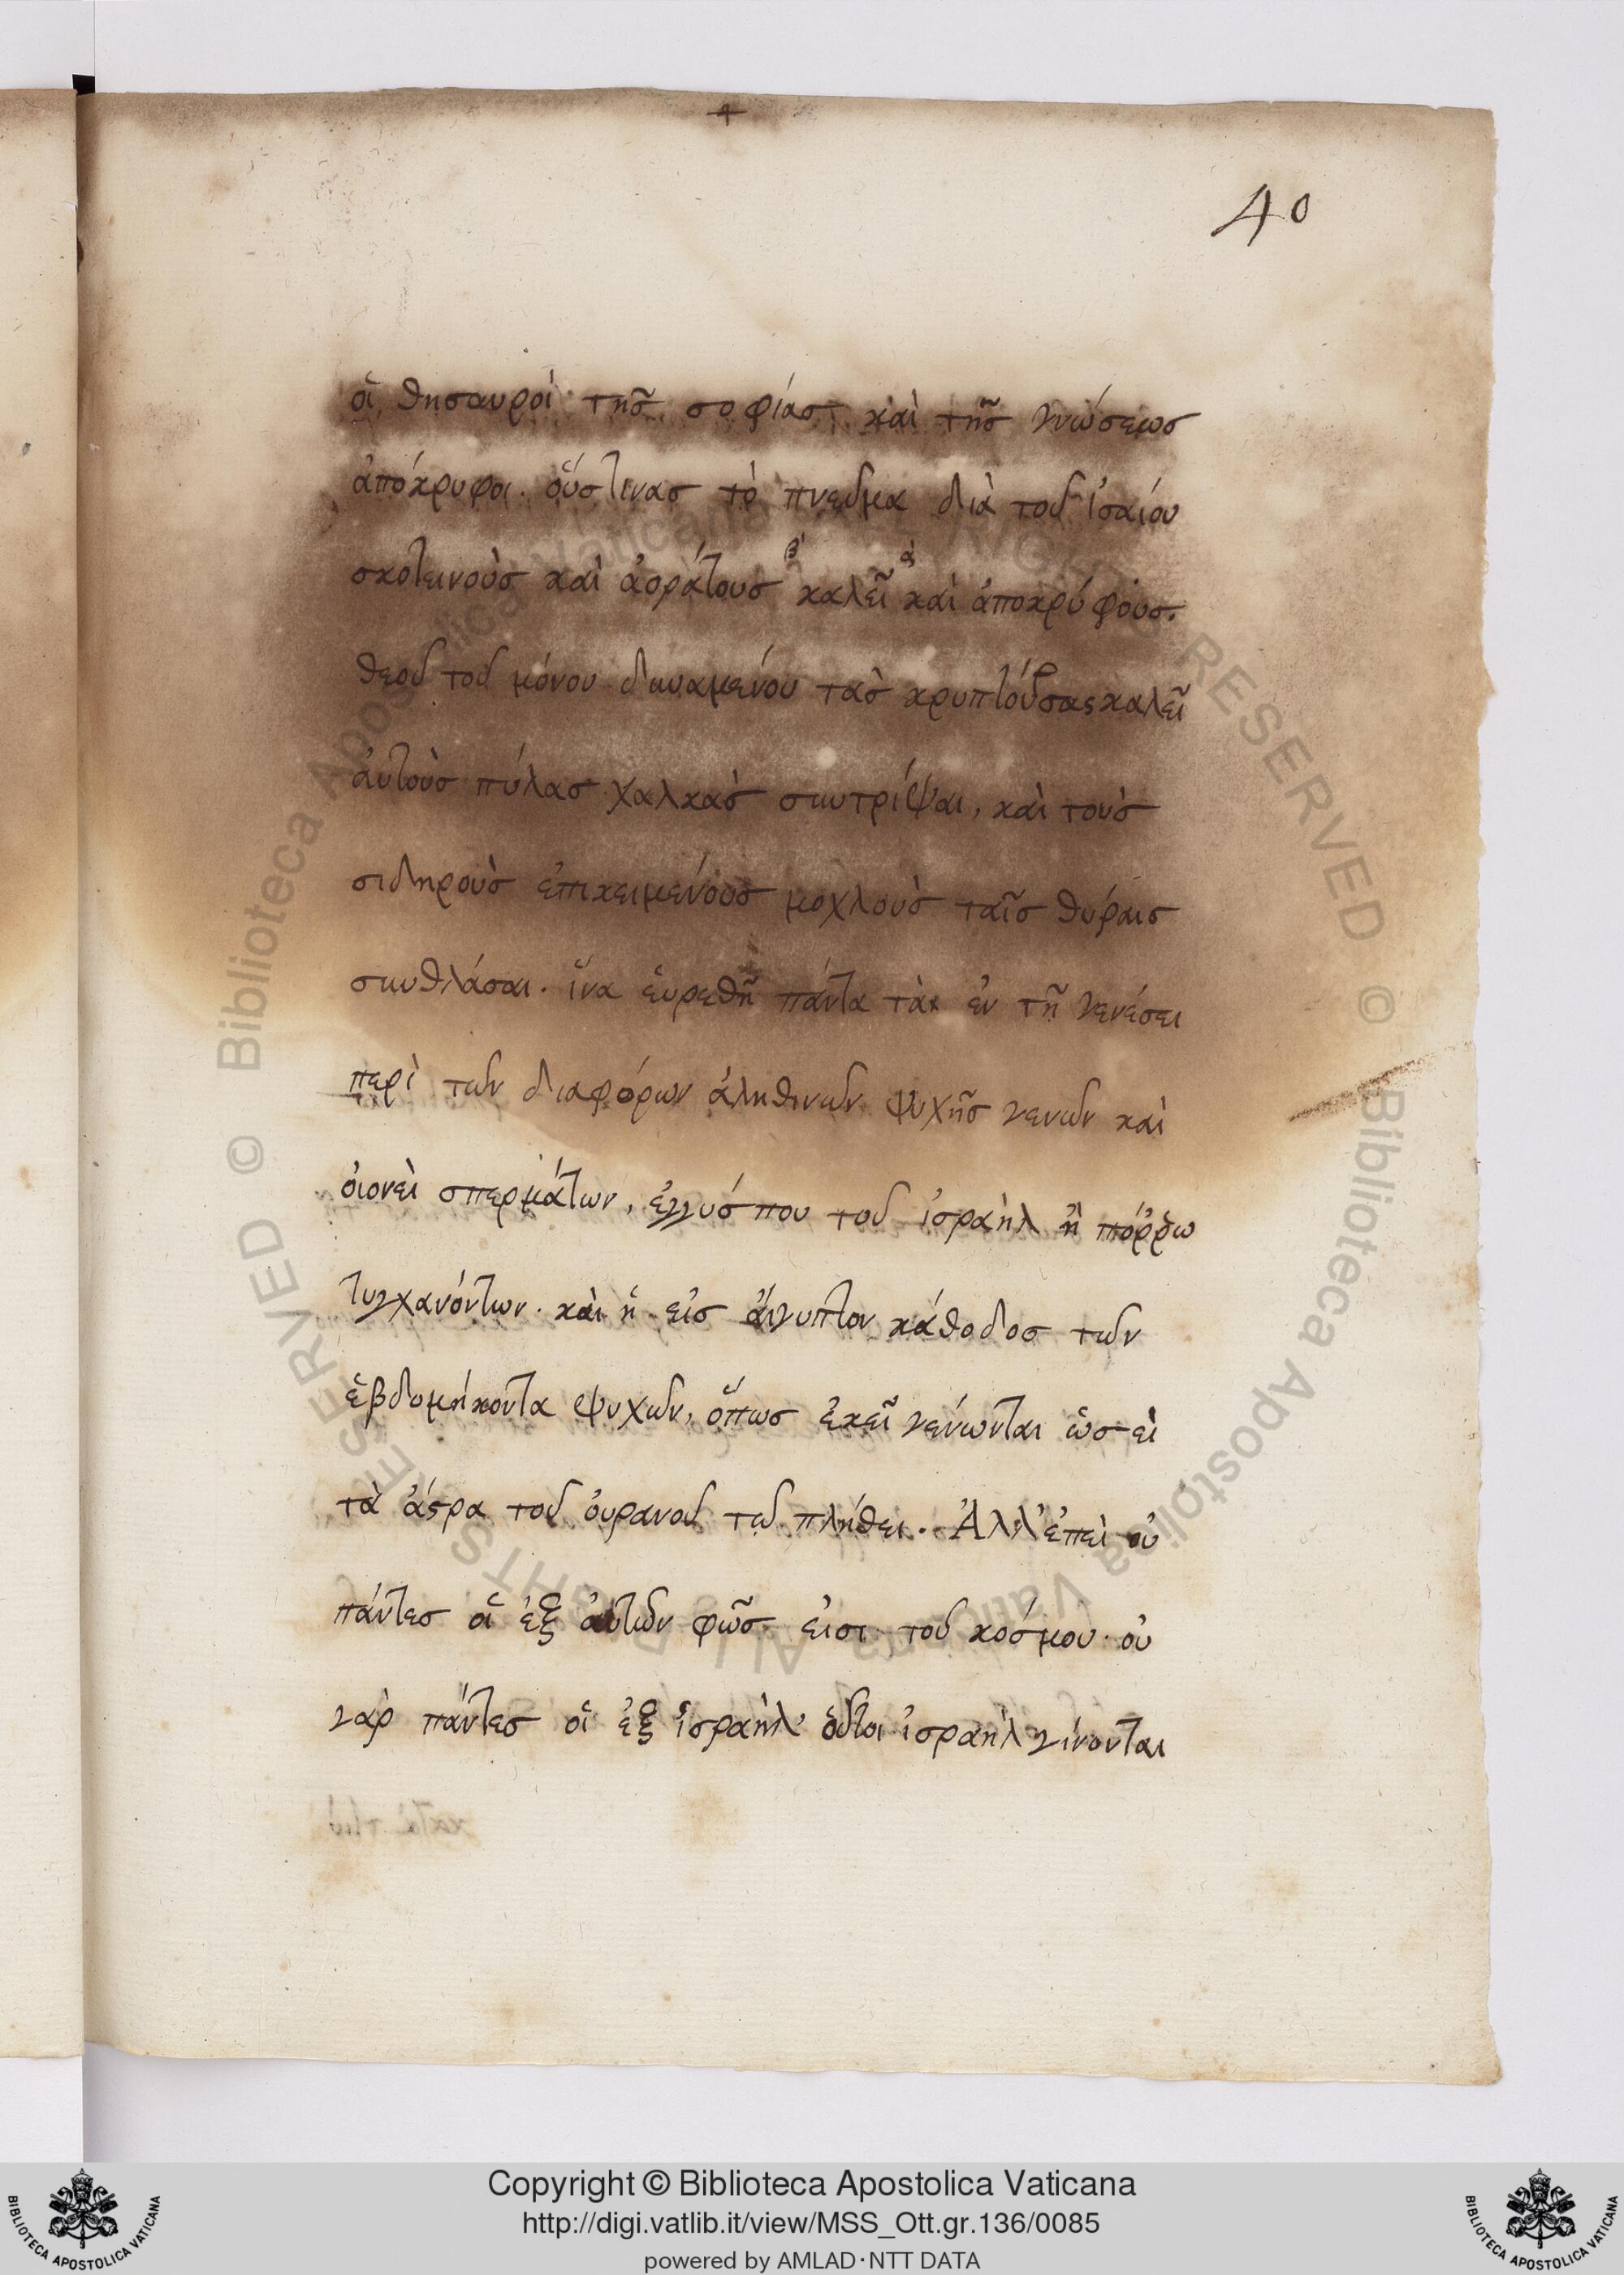 40
οἱ θησαυροὶ τῆς σοφίας καὶ τῆς γνώσεως
ἀπόκρυφοι. οὕστινας τὸ πνεῦμα διὰ τοῦ ἰσαίου
σκοτεινοὺς καὶ ἀοράτους β καλεῖ α καὶ ἀποκρύφους.
θεοῦ τοῦ μόνου δυναμένου τὰς κρυπτούσας καλεῖ
ἀυτοὺς πύλας χαλκὰς συντρίψαι, καὶ τοὺς
σιδηροὺς ἐπικειμένους μοχλοὺς ταῖς θύραις
συνθλάσαι. ἵνα ἑυρεθῆ πάντα τὰ ἐν τῆ γενέσει
περὶ τῶν διαφόρων ἀληθινῶν ψυχῆς γενῶν καὶ
ὁιονεὶ σπερμάτων, ἐγγύς που τοῦ ἰσραὴλ ἢ πόῤῥω
τυγχανόντων. καὶ ἡ εἰς ἄιγυπτον κάθοδος τῶν
ἑβδομήκοντα ψυχῶν, ὅπως ἐκεῖ γένωνται ὡσεὶ
τὰ ἄστρα τοῦ ὀυρανοῦ τῶ πλήθει. Ἀλλ' ἐπεὶ ὀυ
πάντες οἱ ἐξ ἀυτῶν φῶς εἰσι τοῦ κόσμου. ὀυ
γὰρ πάντες οἱ ἐξ ἰσραὴλ ὁῦτοι ἰσραὴλ γίνονται
Copyright © Biblioteca Apostolica Vaticana
http://digi.vatlib.it/view/MSS_Ott.gr.136/0085
powered by AMLAD·NTT DATA
BIBLIOTECA APOSTOLICA VATICANA
BIBLIOTECA APOSTOLICA VATICANA